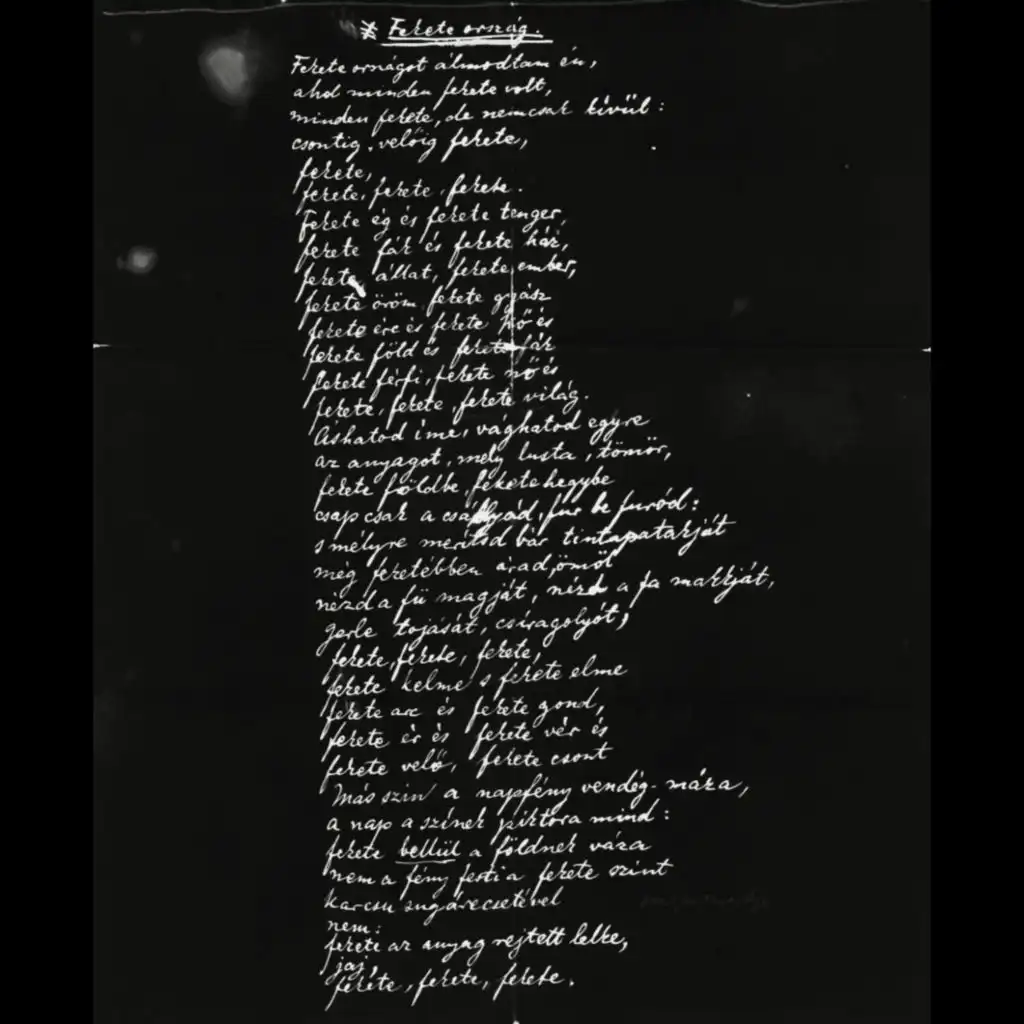 Fekete ország.
Fekete országot álmodtam én,
ahol minden fekete volt,
minden fekete, de nemcsak kívül:
csontig, velőig fekete,
fekete,
fekete, fekete, fekete.
Fekete ég és fekete tenger,
fekete fák és fekete ház,
fekete állat, fekete ember,
fekete öröm, fekete gyász
fekete érc és fekete kő és
fekete föld és fekete fák
fekete férfi, fekete nő és
fekete, fekete, fekete világ.
Áshatod íme, vághatod egyre
az anyagot, mely lusta, tömör,
fekete földbe, fekete hegybe
csap csak a csáklyád, fúr be furód:
s mélyre merítsd bár tintapatakját
még feketébben árad, ömöl
nézd a fű magját, nézd a fa makkját,
gerle tojását, csíragolyót,
fekete, fekete, fekete,
fekete kelme s fekete elme
fekete arc és fekete gond,
fekete ér és fekete vér és
fekete velő, fekete csont
Más szin a napfény vendég-máza,
a nap a színek piktora mind:
fekete bellül a földnek váza
nem a fény festi a fekete színt
karcsu sugárecsetével
nem:
fekete az anyag rejtett lelke,
jaj,
fekete, fekete, fekete.